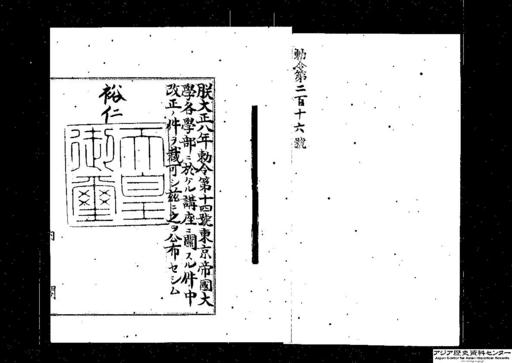 勅令第二百十六號
朕大正八年勅令第十四號東京帝國大
學各學部ニ於ケル講座ニ關スル件中
改正ノ件ヲ裁可シ茲ニ之ヲ公布セシム
裕仁
天皇
御璽
内閣
アジア歴史資料センター
Japan Center for Asian Historical Records